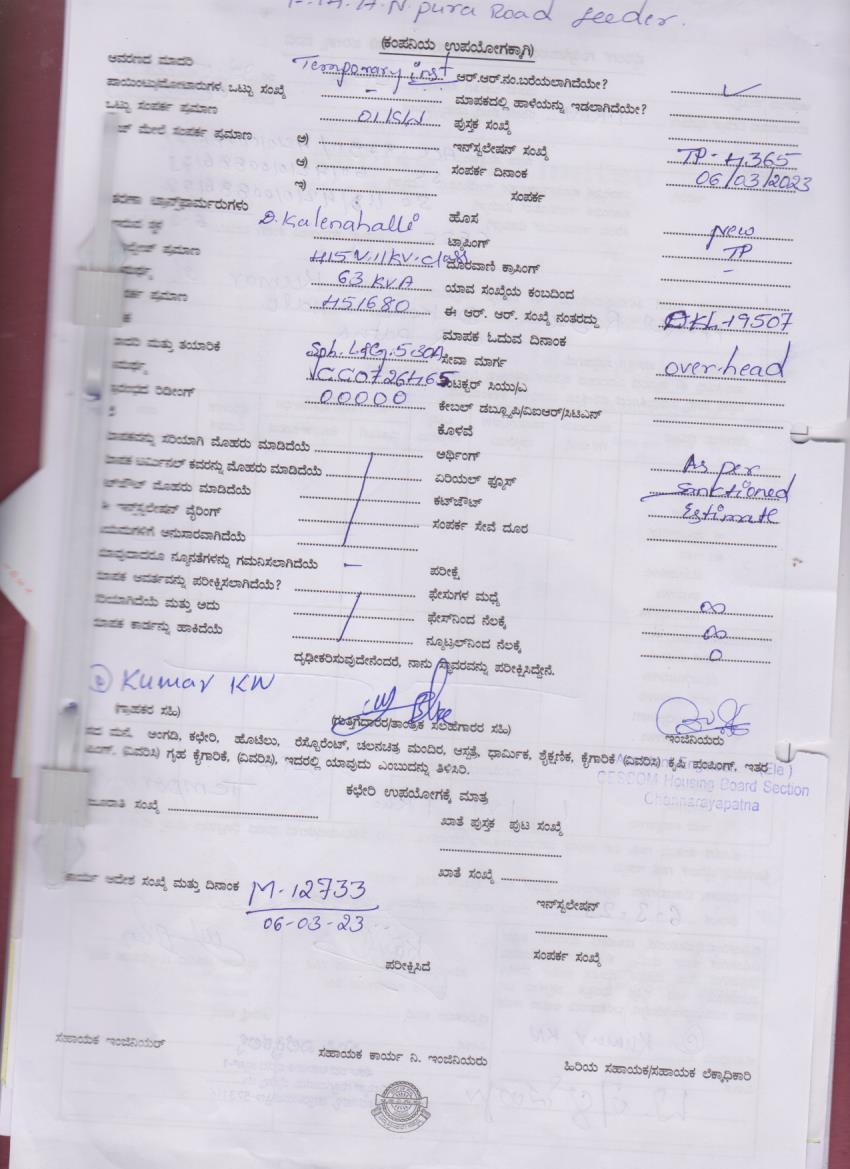 F-14 H.N pura Road feeder.
(ಕಂಪನಿಯ ಉಪಯೋಗಕ್ಕಾಗಿ)
ಆವರಣದ ಮಾದರಿ Temporary inst ಆರ್.ಆರ್.ನಂ.ಬರೆಯಲಾಗಿದೆಯೇ? ✓
ಪಾಯಿಂಟು/ಮೋಟಾರುಗಳ ಒಟ್ಟು ಸಂಖ್ಯೆ - ಮಾಪಕದಲ್ಲಿ ಹಾಳೆಯನ್ನು ಇಡಲಾಗಿದೆಯೇ?
ಒಟ್ಟು ಸಂಪರ್ಕ ಪ್ರಮಾಣ 01KW ಪುಸ್ತಕ ಸಂಖ್ಯೆ
ಮೇಲೆ ಸಂಪರ್ಕ ಪ್ರಮಾಣ ಅ) ಇನ್‌ಸ್ಟಲೇಷನ್ ಸಂಖ್ಯೆ TP-4365
ಆ) ಸಂಪರ್ಕ ದಿನಾಂಕ 06/03/2023
ಇ) ಸಂಪರ್ಕ
ಟ್ರಾನ್ಸ್‌ಫಾರ್ಮರುಗಳು D.Kalenahalli ಹೊಸ New
ಟ್ಯಾಪಿಂಗ್ TP
ಪ್ರಮಾಣ 415V.11KV.class ದೂರವಾಣಿ ಕ್ರಾಸಿಂಗ್ -
63 KVA ಯಾವ ಸಂಖ್ಯೆಯ ಕಂಬದಿಂದ
ಪ್ರಮಾಣ 451680 ಈ ಆರ್. ಆರ್. ಸಂಖ್ಯೆ ನಂತರದ್ದು DKL-19507
ಮಾಪಕ ಓದುವ ದಿನಾಂಕ
ಮತ್ತು ತಯಾರಿಕೆ Sph. L&G. 5-30A ಸೇವಾ ಮಾರ್ಗ over.head
CC0726465 ಸಿಯು/ಎ
ರೀಡಿಂಗ್ 00000 ಕೇಬಲ್ ಡಬ್ಲ್ಯೂಪಿ/ವಿಐಆರ್/ಸಿಟಿಎನ್
ಕೊಳವೆ
ಮಾಪಕವನ್ನು ಸರಿಯಾಗಿ ಮೊಹರು ಮಾಡಿದೆಯೆ ಅರ್ಥಿಂಗ್ As per
ಮಾಪಕ ಟರ್ಮಿನಲ್ ಕವರನ್ನು ಮೊಹರು ಮಾಡಿದೆಯೆ ಏರಿಯಲ್ ಫ್ಯೂಸ್ Sanctioned
ಮೊಹರು ಮಾಡಿದೆಯೆ ಕಟ್‌ಔಟ್ Estimate
ಇನ್‌ಸ್ಟಲೇಷನ್ ವೈರಿಂಗ್ ಸಂಪರ್ಕ ಸೇವೆ ದೂರ
ನಿಯಮಗಳಿಗೆ ಅನುಸಾರವಾಗಿದೆಯೆ
ಯಾವುದಾದರೂ ನ್ಯೂನತೆಗಳನ್ನು ಗಮನಿಸಲಾಗಿದೆಯೆ - ಪರೀಕ್ಷೆ
ಮಾಪಕ ಆವರ್ತವನ್ನು ಪರೀಕ್ಷಿಸಲಾಗಿದೆಯೆ? ಫೇಸುಗಳ ಮಧ್ಯೆ ∞
ಸರಿಯಾಗಿದೆಯೆ ಮತ್ತು ಅದು ಫೇಸ್‌ನಿಂದ ನೆಲಕ್ಕೆ ∞
ಮಾಪಕ ಕಾರ್ಡನ್ನು ಹಾಕಿದೆಯೆ ನ್ಯೂಟ್ರಲ್‌ನಿಂದ ನೆಲಕ್ಕೆ 0
ದೃಢೀಕರಿಸುವುದೇನೆಂದರೆ, ನಾನು ಸ್ಥಾವರವನ್ನು ಪರೀಕ್ಷಿಸಿದ್ದೇನೆ.
Kumar KN
(ಗ್ರಾಹಕರ ಸಹಿ) (ಗುತ್ತಿಗೆದಾರರ/ತಾಂತ್ರಿಕ ಸಲಹೆಗಾರರ ಸಹಿ) ಇಂಜಿನಿಯರು
ಮನೆ, ಅಂಗಡಿ, ಕಛೇರಿ, ಹೊಟೆಲು, ರೆಸ್ಟೊರೆಂಟ್, ಚಲನಚಿತ್ರ ಮಂದಿರ, ಆಸ್ಪತ್ರೆ, ಧಾರ್ಮಿಕ, ಶೈಕ್ಷಣಿಕ, ಕೈಗಾರಿಕೆ (ವಿವರಿಸಿ) ಕೃಷಿ ಪಂಪಿಂಗ್, ಇತರ
ಪಂಪಿಂಗ್, (ವಿವರಿಸಿ) ಗೃಹ ಕೈಗಾರಿಕೆ, (ವಿವರಿಸಿ), ಇದರಲ್ಲಿ ಯಾವುದು ಎಂಬುದನ್ನು ತಿಳಿಸಿರಿ.
(Ele)
CESCOM Housing Board Section
Channarayapatna
ಕಛೇರಿ ಉಪಯೋಗಕ್ಕೆ ಮಾತ್ರ
ಸಂಖ್ಯೆ ಖಾತೆ ಪುಸ್ತಕ ಪುಟ ಸಂಖ್ಯೆ
ಖಾತೆ ಸಂಖ್ಯೆ
ಕಾರ್ಯ ಆದೇಶ ಸಂಖ್ಯೆ ಮತ್ತು ದಿನಾಂಕ M-12733
06-03-23
ಇನ್‌ಸ್ಟಲೇಷನ್
ಸಂಪರ್ಕ ಸಂಖ್ಯೆ
ಪರೀಕ್ಷಿಸಿದೆ
ಸಹಾಯಕ ಇಂಜಿನಿಯರ್ ಸಹಾಯಕ ಕಾರ್ಯ ನಿ. ಇಂಜಿನಿಯರು ಹಿರಿಯ ಸಹಾಯಕ/ಸಹಾಯಕ ಲೆಕ್ಕಾಧಿಕಾರಿ